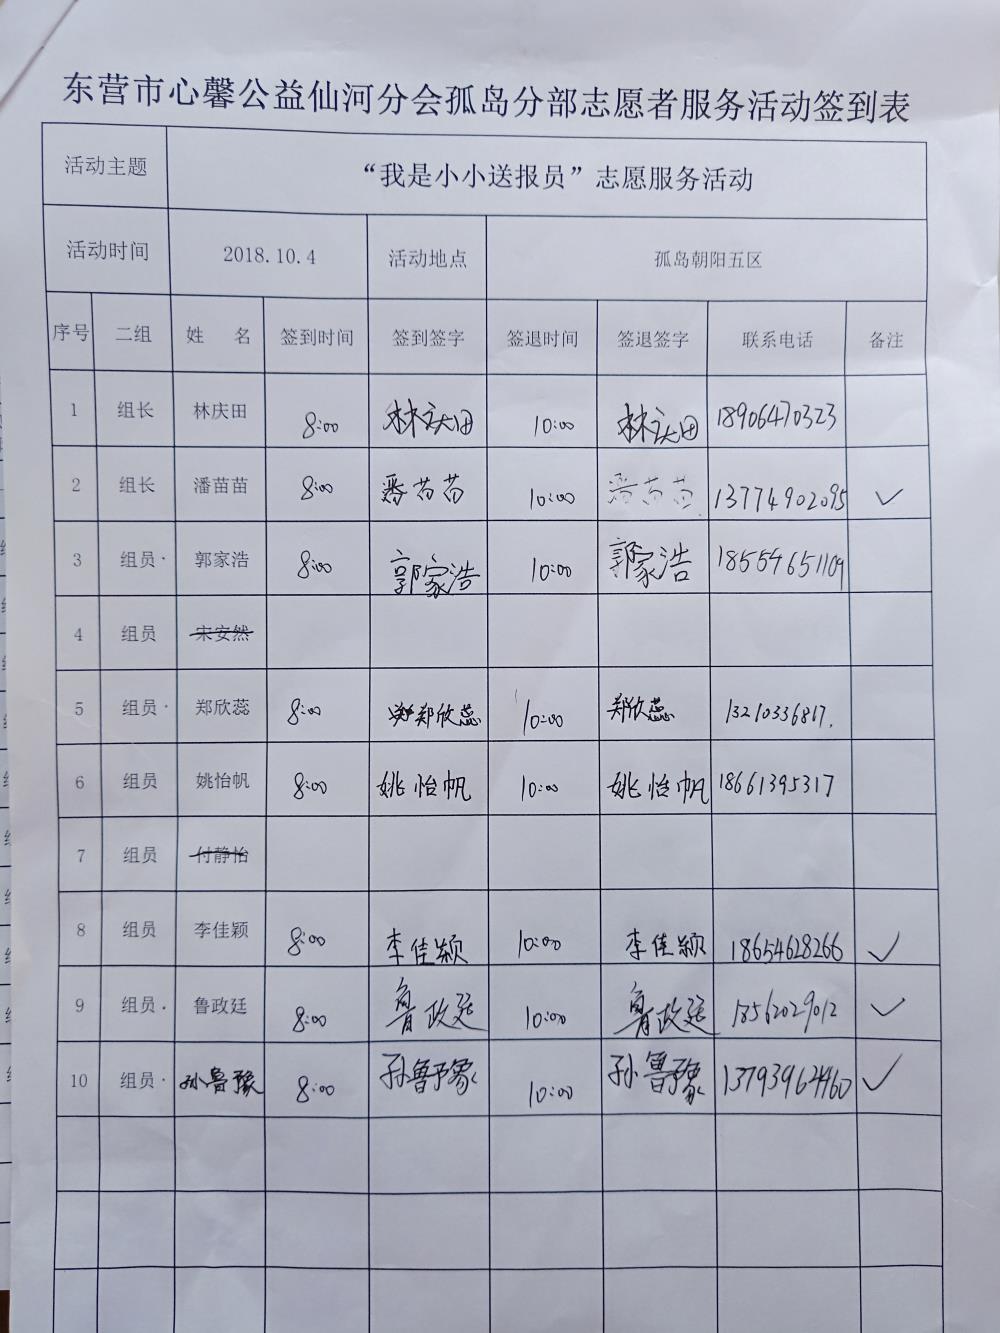 东营市心馨公益仙河分会孤岛分部志愿者服务活动签到表
活动主题 “我是小小送报员”志愿服务活动
活动时间 2018.10.4 活动地点 孤岛朝阳五区
序号 二组 姓 名 签到时间 签到签字 签退时间 签退签字 联系电话 备注
1 组长 林庆田 8:00 林庆田 10:00 林庆田 18906470323
2 组长 潘苗苗 8:00 番苗苗 10:00 番苗苗 13774902095 ✓
3 组员· 郭家浩 8:00 郭家浩 10:00 郭家浩 18554651109
4 组员 宋安然
5 组员· 郑欣蕊 8:00 郑欣蕊 10:00 郑欣蕊 13210336817.
6 组员 姚怡帆 8:00 姚怡帆 10:00 姚怡帆 18661395317
7 组员 付静怡
8 组员 李佳颖 8:00 李佳颖 10:00 李佳颖 18654628266 ✓
9 组员. 鲁政廷 8:00 鲁政廷 10:00 鲁政廷 18562029012 ✓
10 组员· 孙鲁豫 8:00 孙鲁豫 10:00 孙鲁豫 13793964460 ✓